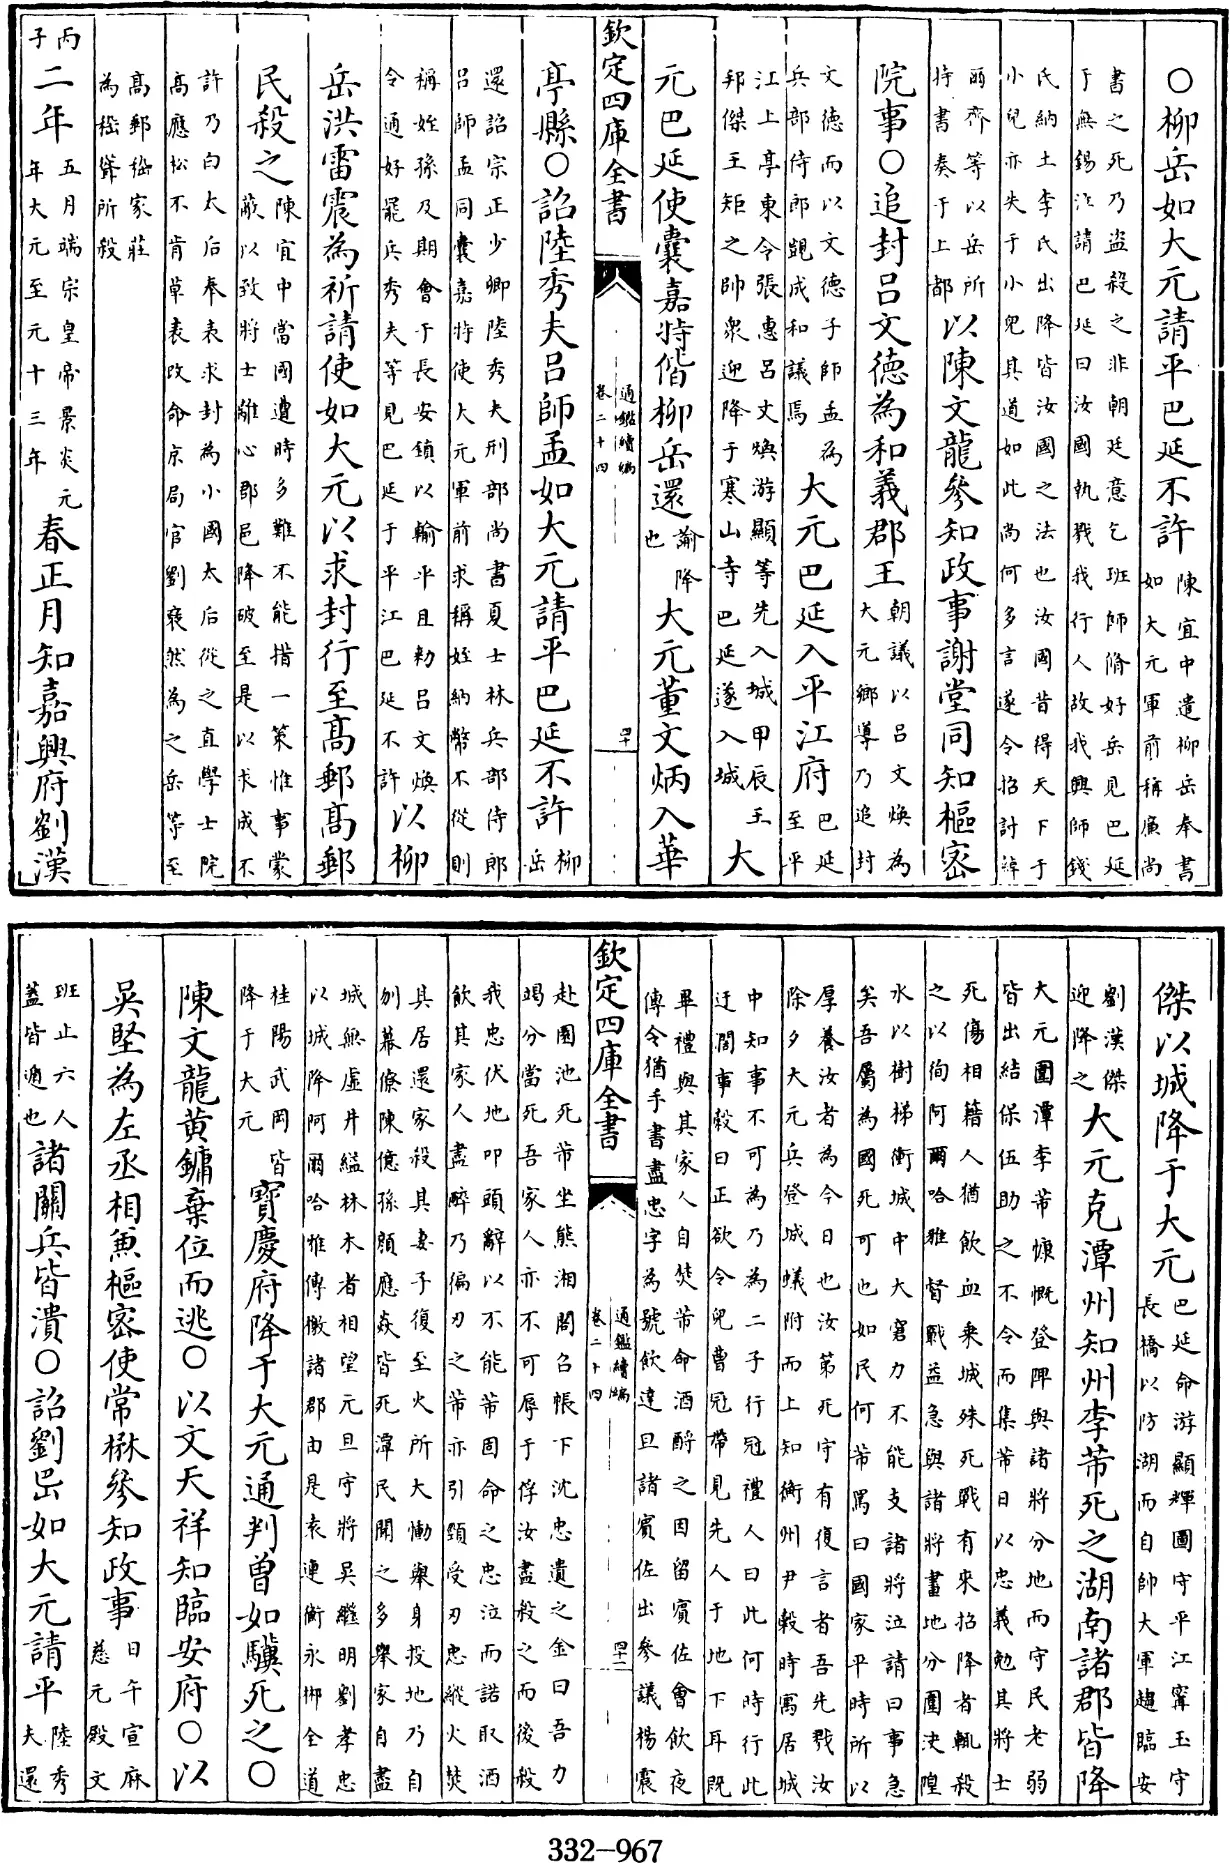 ○柳岳如大元請平巴延不許陳宜中遣柳岳奉書
如大元軍前稱㢘尚
書之死乃盜殺之非朝廷意乞班師脩好岳見巴延
于無錫泣請巴延曰汝國執戮我行人故我興師錢
氏納土李氏出降皆汝國之法也汝國昔得天下于
小兒亦失于小兒其道如此尚何多言遂令招討綽
爾齊等以岳所
持書奏于上都以陳文龍參知政事謝堂同知樞密
院事○追封呂文德為和義郡王朝議以呂文煥為
大元鄉導乃追封
文德而以文德子師孟為
兵部侍郎覬成和議焉大元巴延入平江府巴延
至平
江上亭東令張惠呂文煥游顯等先入城甲辰王
邦傑王矩之帥衆迎降于寒山寺巴延遂入城大
元巴延使囊嘉特偕柳岳還諭降
也大元董文炳入華
欽定四庫全書
通鑑續編
卷二十四
四十
亭縣○詔陸秀夫呂師孟如大元請平巴延不許柳
岳
還詔宗正少卿陸秀夫刑部尚書夏士林兵部侍郎
呂師孟同囊嘉特使大元軍前求稱姪納幣不從則
稱姪孫及期會于長安鎮以輸平且勑呂文煥
令通好罷兵秀夫等見巴延于平江巴延不許以柳
岳洪雷震為祈請使如大元以求封行至髙郵髙郵
民殺之陳宜中當國遭時多難不能措一策惟事蒙
蔽以致將士離心郡邑降破至是以求成不
許乃白太后奉表求封為小國太后從之直學士院
髙應松不肯草表改命京局官劉褎然為之岳等至
髙郵嵇家莊
為嵇聳所殺
丙子二年五月端宗皇帝景炎元
年大元至元十三年春正月知嘉興府劉漢
傑以城降于大元巴延命游顯輝圖守平江甯玉守
長橋以防湖而自帥大軍趨臨安
劉漢傑
迎降之大元克潭州知州李芾死之湖南諸郡皆降
大元圍潭李芾慷慨登陴與諸將分地而守民老弱
皆出結保伍助之不令而集芾日以忠義勉其將士
死傷相藉人猶飲血乘城殊死戰有來招降者輒殺
之以徇阿爾哈雅督戰益急與諸將畫地分圍決隍
水以樹梯衝城中大窘力不能支諸將泣請曰事急
矣吾屬為國死可也如民何芾罵曰國家平時所以
厚養汝者為今日也汝第死守有復言者吾先戮汝
除夕大元兵登城蟻附而上知衡州尹穀時寓居城
中知事不可為乃為二子行冠禮人曰此何時行此
迂闊事穀曰正欲令兒曹冠帶見先人于地下耳既
畢禮與其家人自焚芾命酒酹之因留賓佐會飲夜
傳令猶手書盡忠字為號飲達旦諸賓佐出參議楊震
欽定四庫全書
通鑑續編
卷二十四
四十一
赴園池死芾坐熊湘閣召帳下沈忠遺之金曰吾力
竭分當死吾家人亦不可辱于俘汝盡殺之而後殺
我忠伏地叩頭辭以不能芾固命之忠泣而諾取酒
飲其家人盡醉乃徧刃之芾亦引頸受刃忠縱火焚
其居還家殺其妻子復至火所大慟舉身投地乃自
刎幕僚陳億孫顔應焱皆死潭民聞之多舉家自盡
城無虛井縊林木者相望元旦守將吳繼明劉孝忠
以城降阿爾哈雅傳檄諸郡由是袁連衡永郴全道
桂陽武岡皆
降于大元寶慶府降于大元通判曾如驥死之○
陳文龍黄鏞棄位而逃○以文天祥知臨安府○以
吳堅為左丞相兼樞密使常楙參知政事日午宣麻
慈元殿文
班止六人
蓋皆遁也諸關兵皆潰○詔劉岊如大元請平陸秀
夫還
332-967